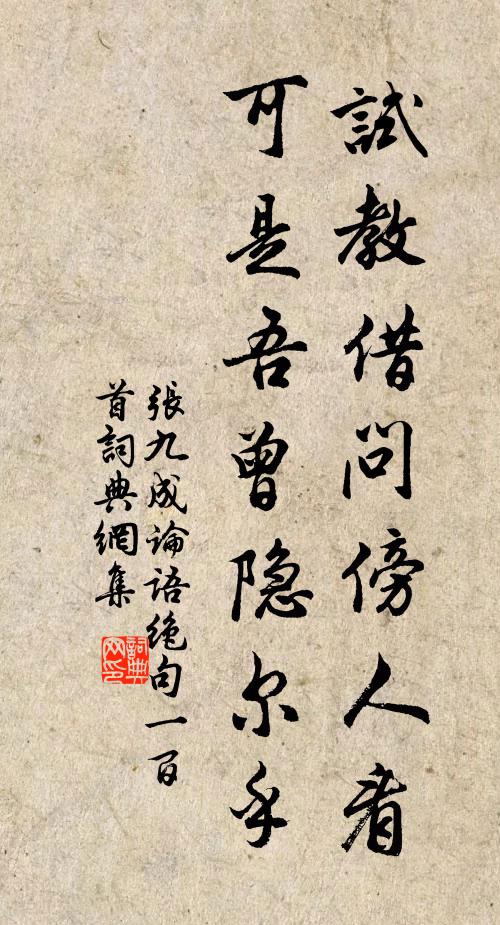 試教借問傍人看
可是吾曾隐尔乎
張九成論語绝句一百
首詞典網集
詞典
网印